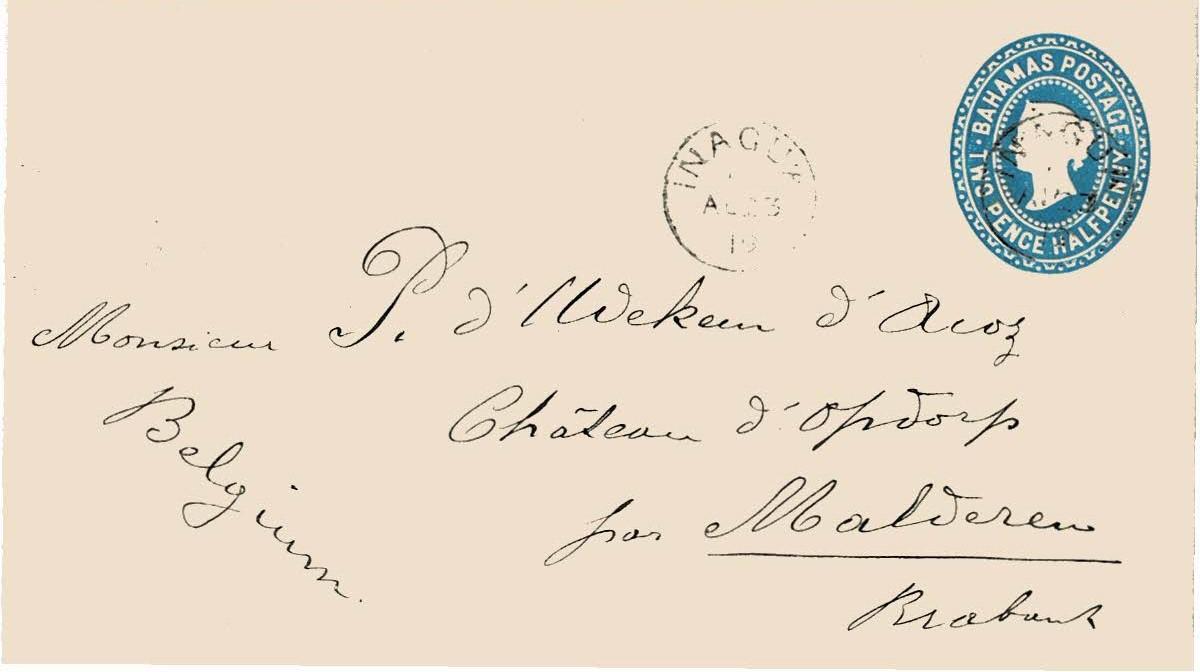 BAHAMAS POSTAGE
TWO PENCE HALFPENNY
INAGUA
AU 23
INAGU
Monsieur P. d'Udekem d'Acoz
Château d'Opdorp
par Malderen
Brabant
Belgium.